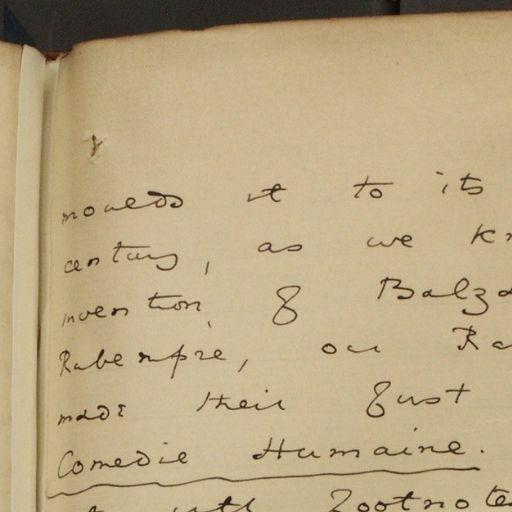 moulds it to its
century, as we kn
invention of Balza
Rubempre, our Ra
made their first
Comedie Humaine.
with footnote